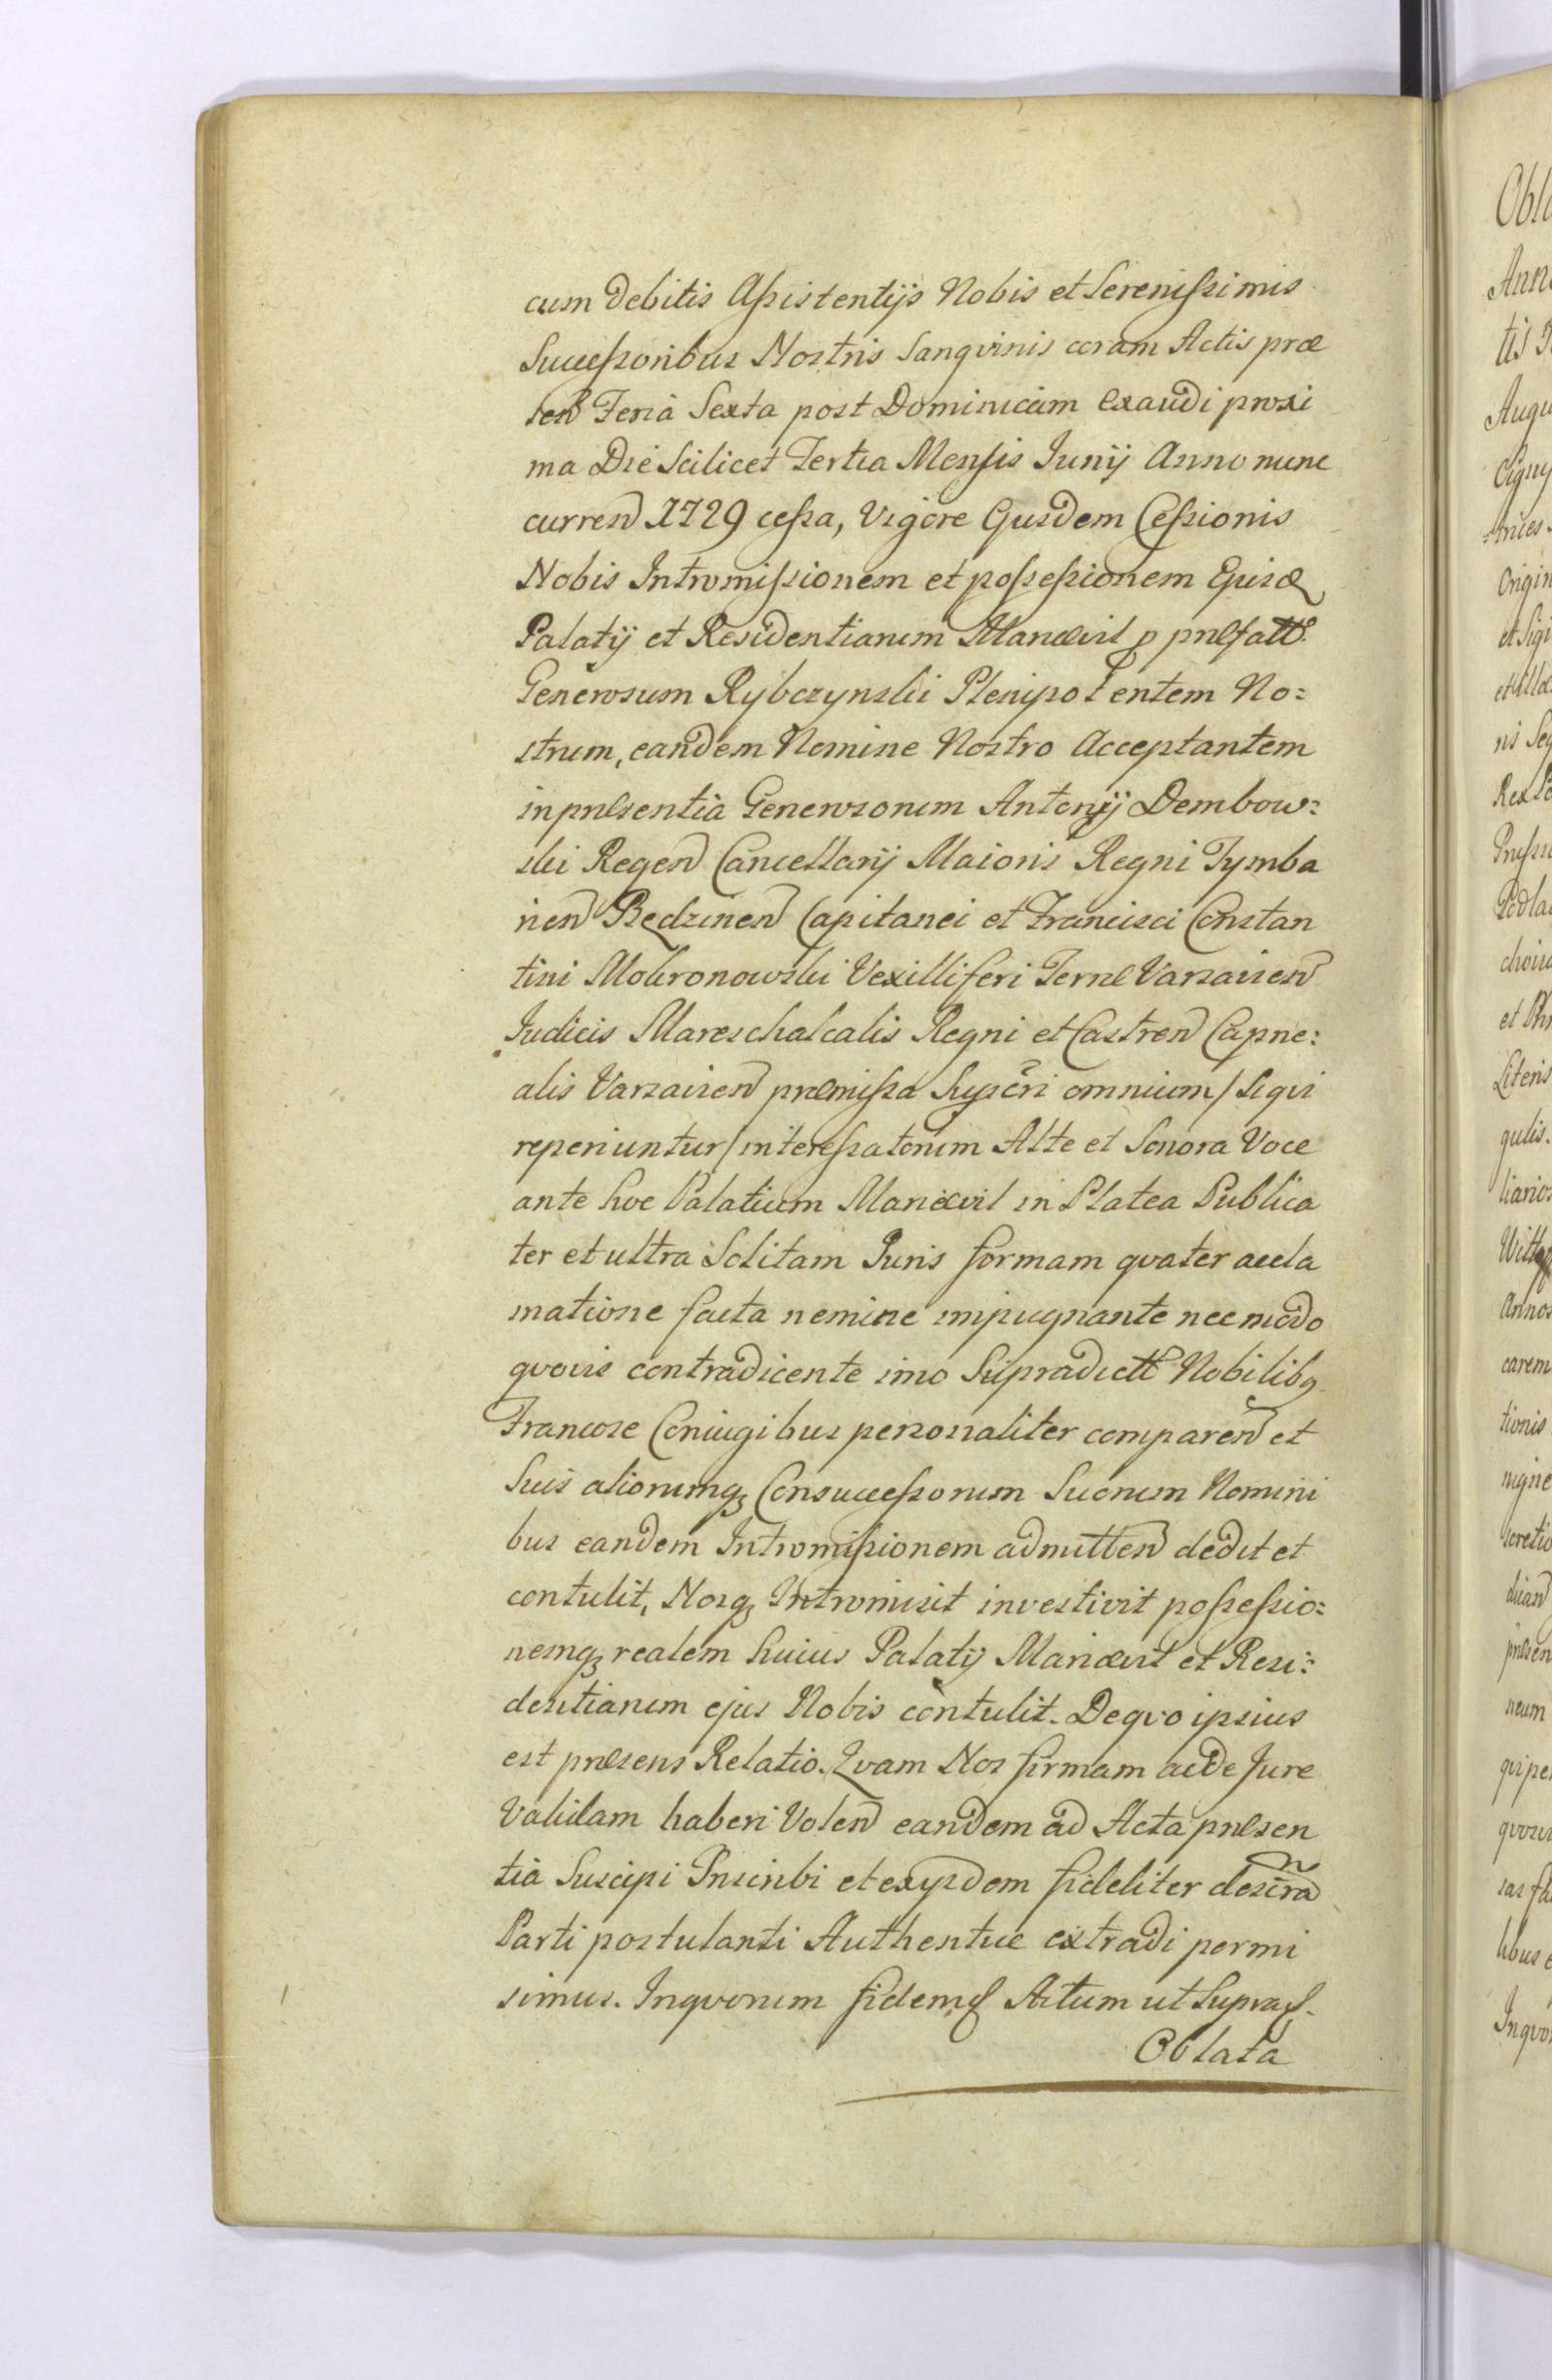 cum debitis Assistentijs Nobis et Serenissimis
Successoribus Nostris Sangvinis coram Actis præ
sen Feria Sexta post Dominicam Exaudi proxi
ma Die Scilicet Tertia Mensis Junij Anno nunc
curren 1729 cessa, Vigore Ejusdem Cessionis
Nobis Intromissionem et possessionem Ejusd
Palatij et Residentiarum Marievil p præfatt
Generosum Rybczynski Plenipotentem No=
strum, eandem Nomine Nostro Acceptantem
in præsentia Generosorum Antonij Dembow=
ski Regen Cancellarij Maioris Regni Tymba
rien Będzinen Capitanei et Francisci Constan
tini Mokronowski Vexilliferi Terræ Varsavien
Judicis Mareschalcalis Regni et Castren Capne=
alis Varsavien præmissa Suscri omnium / Si qvi
reperiuntur / interessatorum Alte et Sonora Voce
ante hoc Palatium Marievil in Platea Publica
ter et ultra Solitam Juris formam qvater accla
matione facta nemine impugnante nec modo
qvovis contradicente imo Supradictt Nobilibq
Francose Coniugibus personaliter comparen et
Suis aliorumq Consuccessorum Suorum Nomini
bus eandem Intromissionem admitten dedit et
contulit, Nosq Intromisit investivit possessio=
nemq realem huius Palatij Marievil et Resi=
dentiarum ejus Nobis contulit. De qvo ipsius
est præsens Relatio. Qvam Nos firmam ac de Jure
Validam haberi Volen eandem ad Acta præsen
tia Suscipi Inscribi et ex ijsdem fideliter descra
Parti postulanti Authentice extradi permi
simus. In qvorum fidem Actum ut Supra
Oblata
Obla
Ann
tis
Augu
Origin
et Sigi
et illa
nis Seq
Rex
Podla
et
Literis
gulis.
liario
Annos
carem
tionis
cretio
præsen
neum
libus
In qvo